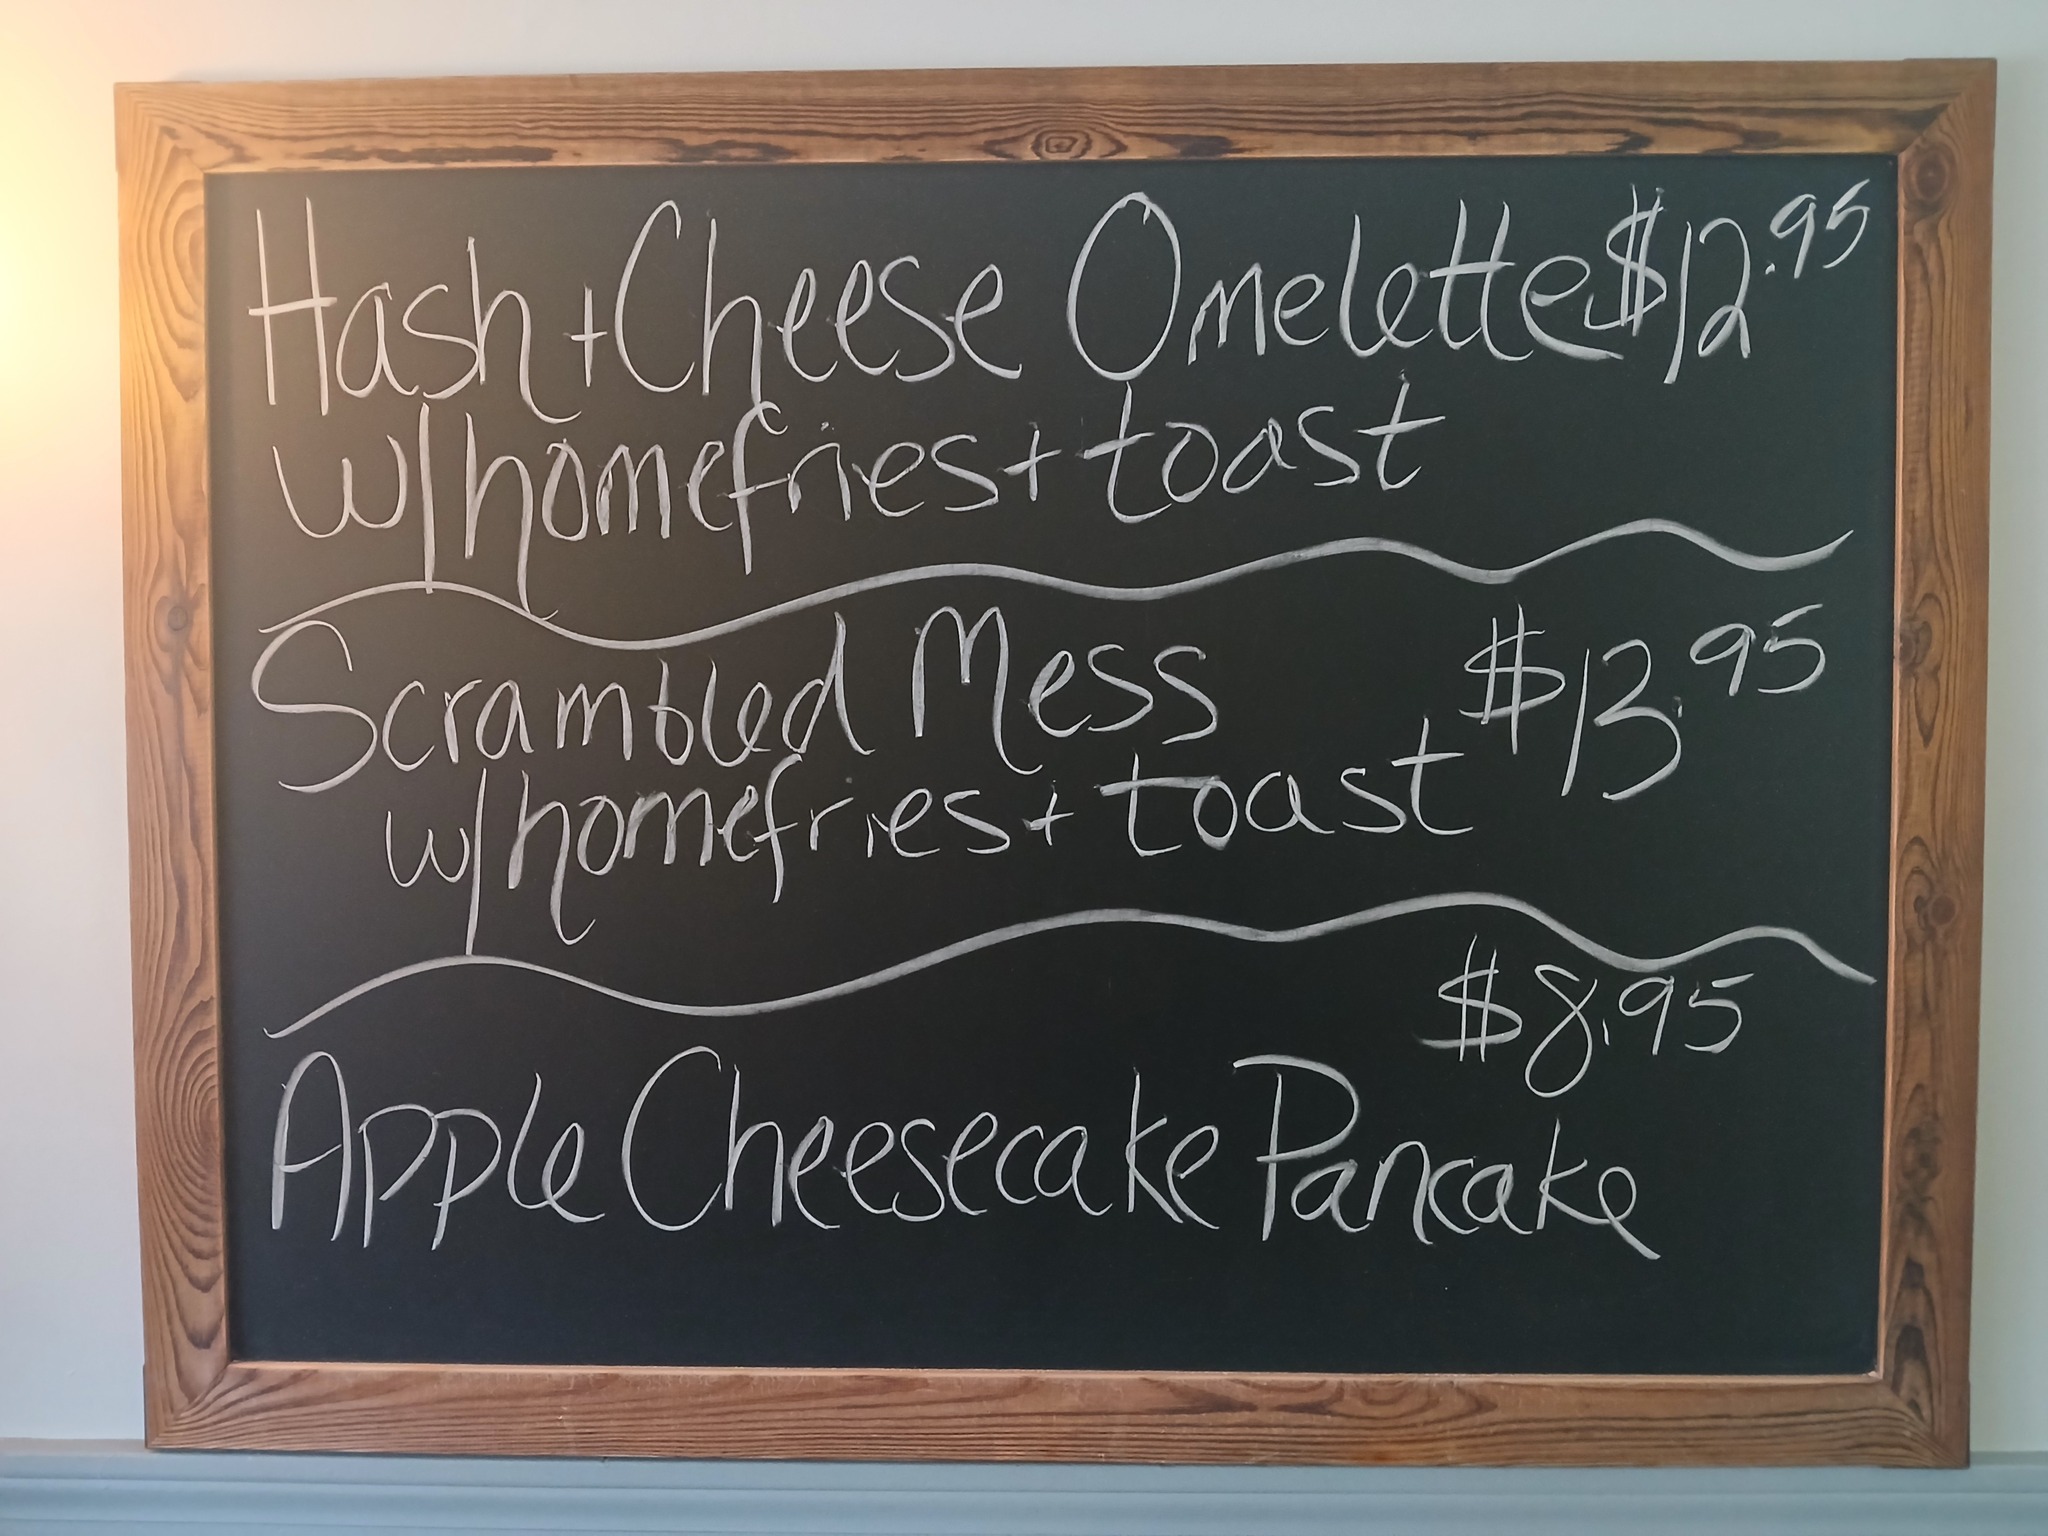 Hash + Cheese Omelette $12.95
w/homefries + toast
Scrambled Mess $13.95
w/homefries + toast
$8.95
Apple Cheesecake Pancake